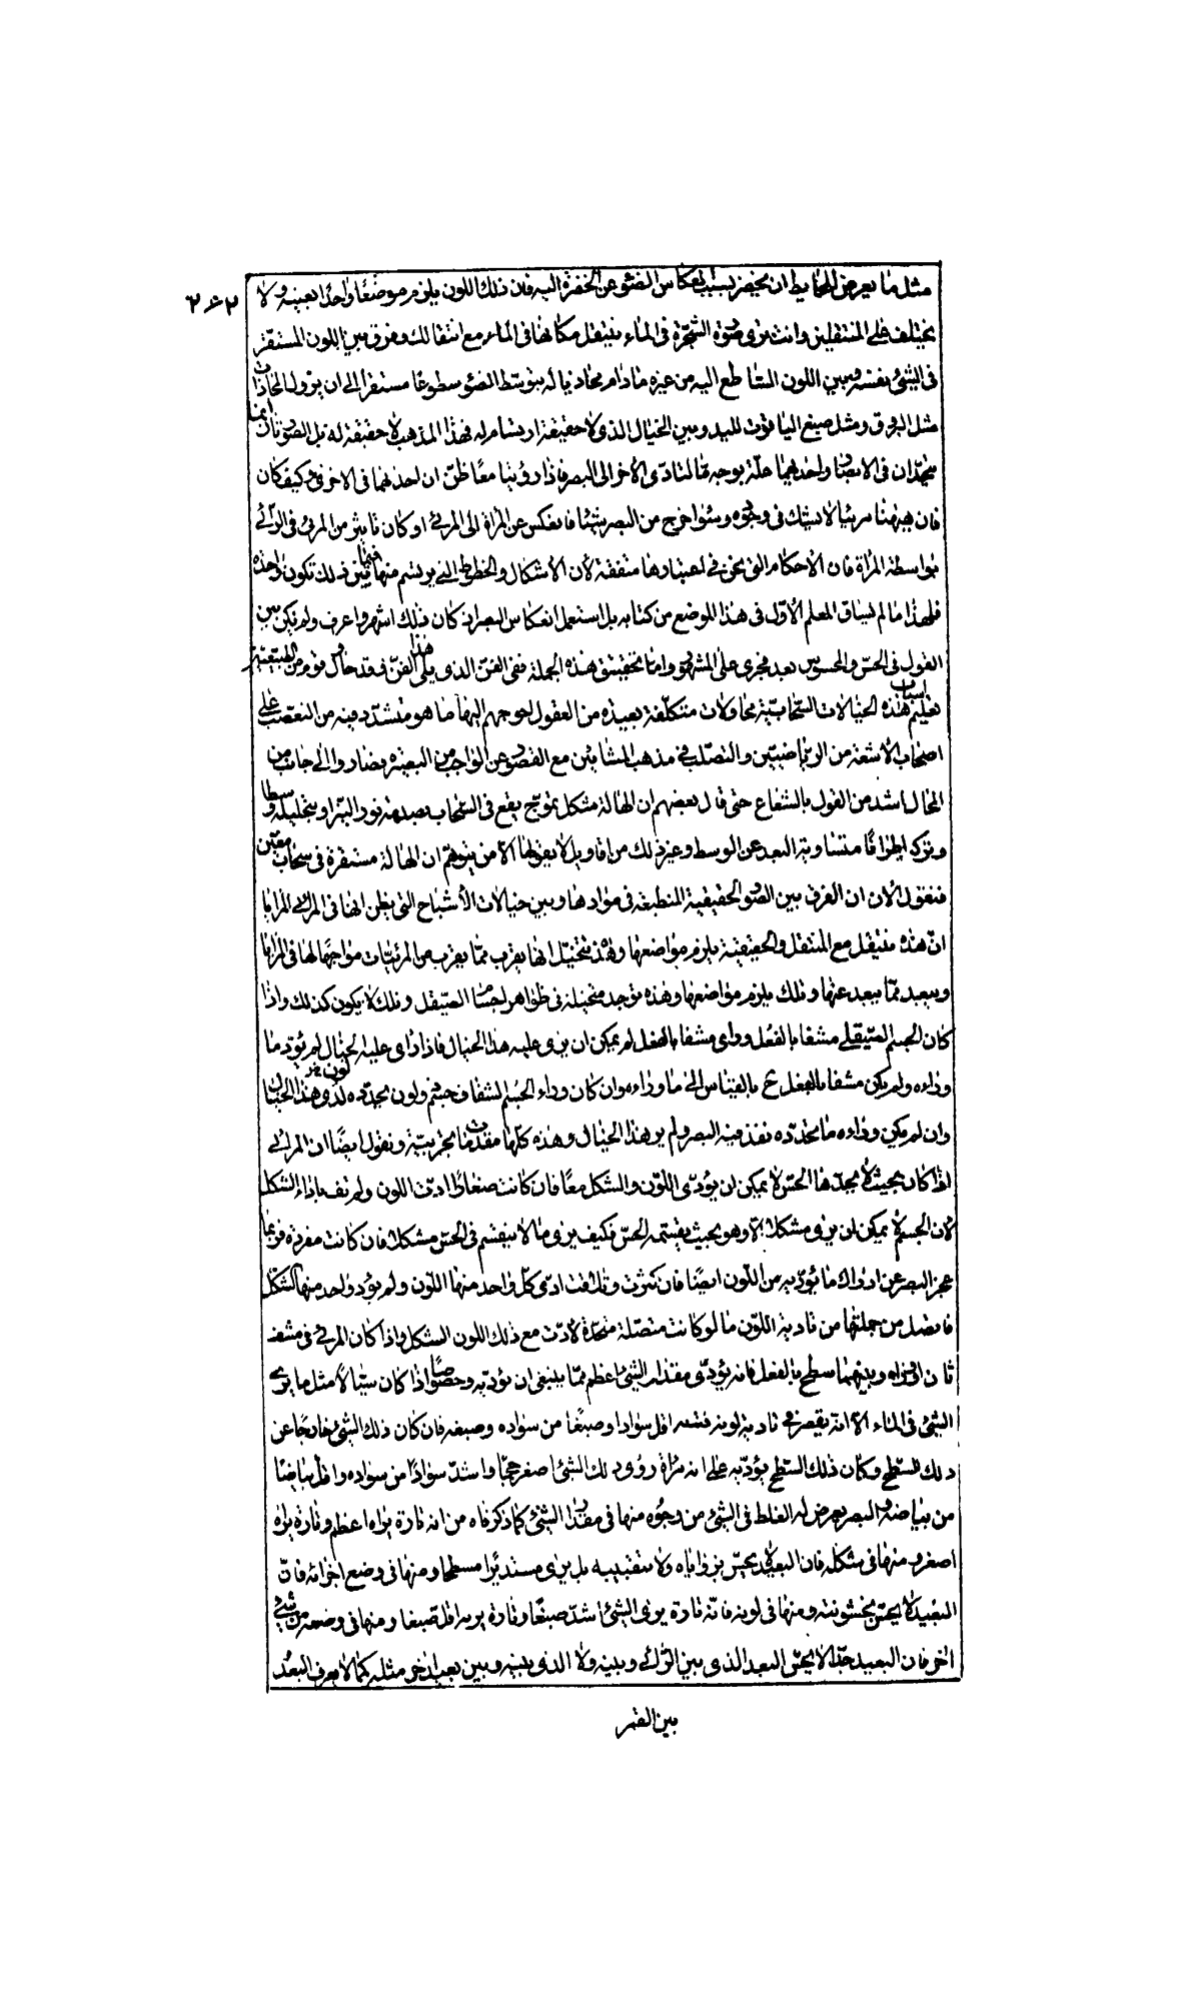 ٢٦٢
مثل ما يعرض للحايط ان يخضر بسبب انعكاس الضؤ عن الخضرة اليه فان ذلك اللون يلزم موضعا واحدا بعينه ولا
يختلف على المنتقلين وانت ترى صورة الشجرة فى الماء ينتقل مكانها فى الماء مع انتقالك وفرق بين اللون المستقر
فى الشئ نفسه وبين اللون الساطع اليه من غيره مادام محاذيا له بتوسط الضؤ سطوعا مستقرا الى ان يزول المحاذات
مثل البرق ومثل صبغ الياقوت لليد وبين الخيال الذى لا حقيقة ارتسام له فهذا المذهب لا حقيقة له بل الصورتان انما
يتحدان فى الابصار واحديهما علة بوجه ما لتادى الاخر الى البصر فاذا رؤيتا معا ظن ان احدهما فى الاخرى وكيف كان
فان هيهنا مرئيا لا نشك فى وجوده وسواء خرج من البصر شئ فانعكس عن المرآة الى المرئى او كان تاثير من المرئى فى الرائى
بواسطة المرآة فان الاحكام التى نحن فى اعتبارها متفقة لان الاشكال والخطوط التى يرتسم منها فيما بين ذلك تكون واحدة
فلهذا ما لم يساق المعلم الاول فى هذا الموضع من كتابه بل استعمل انعكاس البصر اذ كان ذلك اشهر واعرف ولم يكن بين
القول فى الحس والمحسوس بعد فجرى على المشهور وانما تحقيق هذه الجملة ففى الفن الذى يلى هذا الفن وقد حاول قوم من
تعليم اسباب هذه الخيالات السحابية محاولات متكلفة بعيدة من العقول احوجهم اليها ما هو متشدد فيه من التعصب على
اصحاب الاشعة من الرياضيين والتصلب فى مذهب المشائين مع القصور عن الواجب من البصيرة فصاروا الى جانب من
المحال اشد من القول بالشعاع حتى قال بعضهم ان الهالة مشكل بتموج يقع فى السحاب بصدمة نور النير او بتحليله وسطا
وتركه اطرافا متساوية البعد عن الوسط وغير ذلك من اقاويل لا يقولها الا من يتوهم ان الهالة مستقرة فى سحاب معين
فنقول الان ان الفرق بين الصور الحقيقية المنطبعة فى موادها وبين خيالات الاشباح التى يظن انها فى المرائى المرايا
ان هذه تنتقل مع المنتقل والحقيقية يلزم مواضعها وهذه تتخيل انها يقرب مما يقرب من المرئيات مواجها لها فى المرايا
ويبعد مما يبعد عنها وتلك يلزم مواضعها وهذه توجد متخيلة فى ظواهر اجسام الصقيل وتلك لا يكون كذلك واذا
كان الجسم الصيقلى مشفا بالفعل وراى مشفا بالفعل لم يمكن ان يرى عليه هذا الخيال فاذا راى عليه الخيال لم يؤد ما
وراءه ولم يكن مشفا بالفعل ح بالقياس الى ما وراءه وان كان وراء الجسم الشفاف جسم ولون يحدده لون ادى هذا الخيال
وان لم يكن وراءه ما يحدده نفذ فيه البصر ولم ير هذا الخيال وهذه كلها مقدمات تجربية ونقول ايضا ان المرائى
اذا كان بحيث لا يحدها الحس لا يمكن ان يؤدى اللون والشكل معا فان كانت صغارا ادت اللون ولم تف باداء الشكل
لان الجسم لا يمكن ان يرى مشكلا الا وهو بحيث يقسمه الحس فكيف يرى ما لا ينقسم فى الحس مشكلا فان كانت مفردة فربما
عجز البصر عن ادراك ما يؤديه من اللون ايضا فان كثرت وتلاقت ادى كل واحد منها اللون ولم يؤد واحد منها الشكل
فاتصل من جملتها من تادية اللون ما لو كانت متصلة متحدة لادت مع ذلك اللون الشكل واذا كان المرئى فى مشف
ثان وراه وبينهما سطح بالفعل فانه يؤدى مقدار الشئ اعظم مما ينبغى ان يؤديه وخصوصا اذا كان سيالا مثل ما يرى
الشئ فى الماء الا انه يقصر فى تادية لونه فتقسه اقل سوادا وصبغا من سواده وصبغه فان كان ذلك الشئ خارجا عن
ذلك السطح وكان ذلك السطح يؤديه على انه مرآة رؤى ذلك الشئ اصغر حجما واشد سوادا من سواده واقل بياضا
من بياضه والبصر يعرض له الغلط فى الشئ من وجوه منها فى مقدار الشئ كما ذكرناه من انه تارة يراه اعظم وتارة يراه
اصغر ومنها فى شكله فان البعيد لا يحس بزواياه ولا بتقبيبه بل يرى مستديرا مسطحا ومنها فى وضع اجزائه فان
البعيد لا يحس بخشونته ومنها فى لونه فانه تارة يرى الشئ اشد صبغا وتارة يراه اقل صبغا ومنها فى وضعه من شئ
اخر فان البعيد جدا لا يحس البعد الذى بين الرائى وبينه ولا الذى بينه وبين بعيد اخر مثله كما لا يعرف البعد
بين القمر